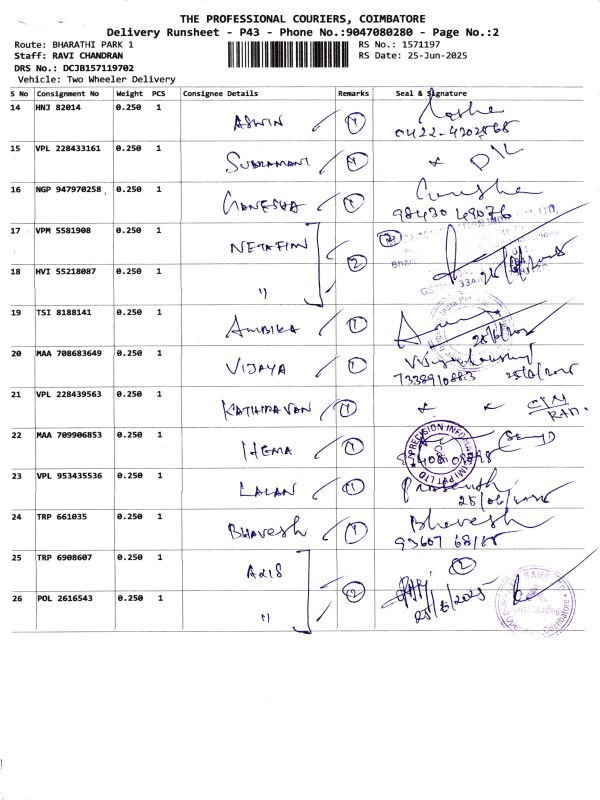 THE PROFESSIONAL COURIERS, COIMBATORE
Delivery Runsheet - P43 - Phone No.:9047080280 - Page No.:2
Route: BHARATHI PARK 1 RS No.: 1571197
Staff: RAVI CHANDRAN RS Date: 25-Jun-2025
DRS No.: DCJB157119702
Vehicle: Two Wheeler Delivery
S No Consignment No Weight PCS Consignee Details Remarks Seal & Signature
14 HNJ 82014 0.250 1 ASWIN 1
0422-4202568
15 VPL 228433161 0.250 1 SUBRAMANI 1 DIL
16 NGP 947970258 0.250 1 GANESHA 1 Ganesha
98430 49076
17 VPM 5581908 0.250 1 NETAFIM 2
18 HVI 55218087 0.250 1 "
19 TSI 8188141 0.250 1 AMBIKA 1
25/6/2025
20 MAA 708683649 0.250 1 VIJAYA 1
7338910883 25/6/2025
21 VPL 228439563 0.250 1 KATHIRAVAN 1
22 MAA 709906853 0.250 1 HEMA 1
PRECISION INFOMATIC (M) PVT LTD
23 VPL 953435536 0.250 1 LALAN 1 Prasanth
25/06/2025
24 TRP 661035 0.250 1 Bhavesh 1 Bhavesh
93607 68185
25 TRP 6908607 0.250 1 2
26 POL 2616543 0.250 1 " 2
25/6/2025